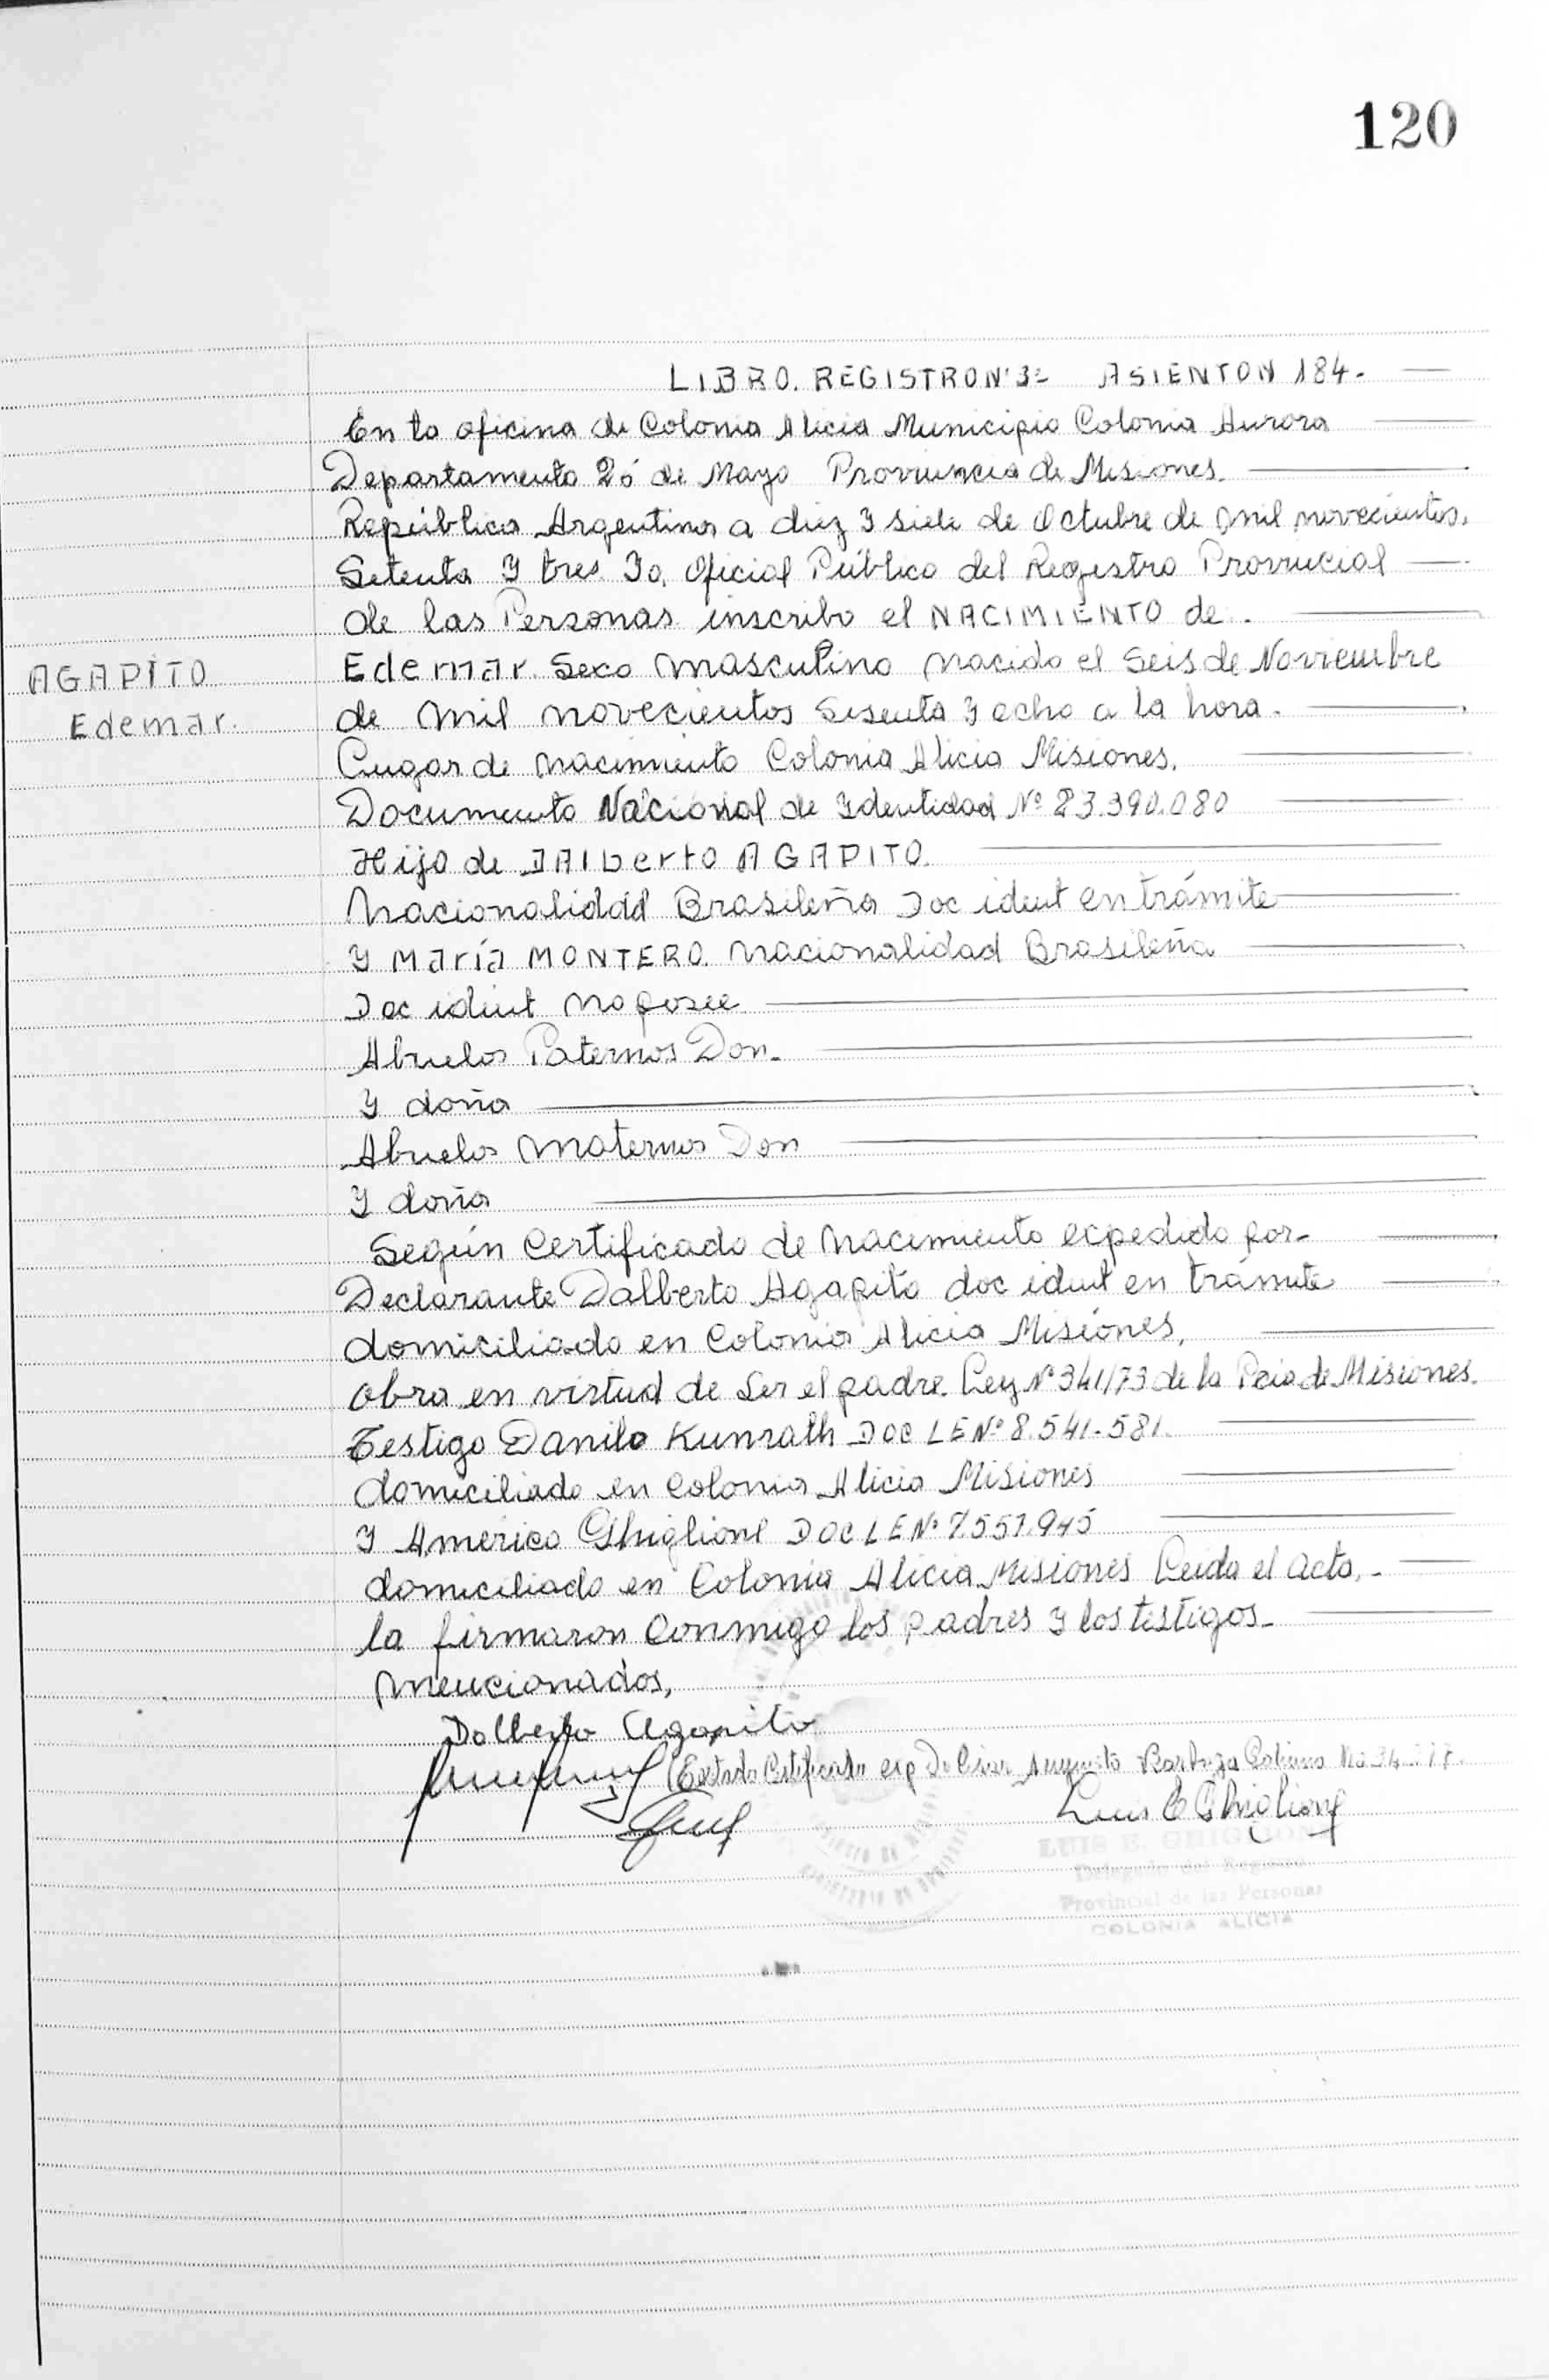 120
LIBRO. REGISTRO Nº 3= ASIENTO N 184.
En la oficina de Colonia Alicia Municipio Colonia Aurora
Departamento 25 de Mayo Provincia de Misiones.
República Argentina a diez y siete de Octubre de mil novecientos.
Setenta y tres Yo. Oficial Público del Registro Provincial
de las Personas inscribo el NACIMIENTO de.
AGAPITO
Edemar.
Edemar. Sexo masculino nacido el Seis de Noviembre
de mil novecientos sesenta y ocho a la hora.
Lugar de nacimiento Colonia Alicia Misiones.
Documento Nacional de Identidad Nº 23.390.080
Hijo de DAlberto AGAPITO.
Nacionalidad Brasileña Doc ident en trámite
y María MONTERO. nacionalidad Brasileña
Doc ident no posee
Abuelos Paternos Don.
y doña
Abuelos maternos Don
y doña
Según Certificado de nacimiento expedido por-
Declarante Dalberto Agapito doc ident en trámite
domiciliado en Colonia Alicia Misiones.
obra en virtud de ser el padre. Ley Nº 341/73 de la Pcia de Misiones.
Testigo Danilo Kunrath DOC LE Nº 8.541-581.
domiciliado en Colonia Alicia Misiones
y Américo Ghiglione DOC LE Nº 7.557.945
domiciliado en Colonia Alicia Misiones Leida el acta.-
la firmaron conmigo los padres y los testigos-
mencionados,
Dalberto Agapito
Certificado exp Augusto
Luis E Ghiglione
LUIS E. GHIGLIONE
Delegado del Registro
Provincial de las Personas
COLONIA ALICIA